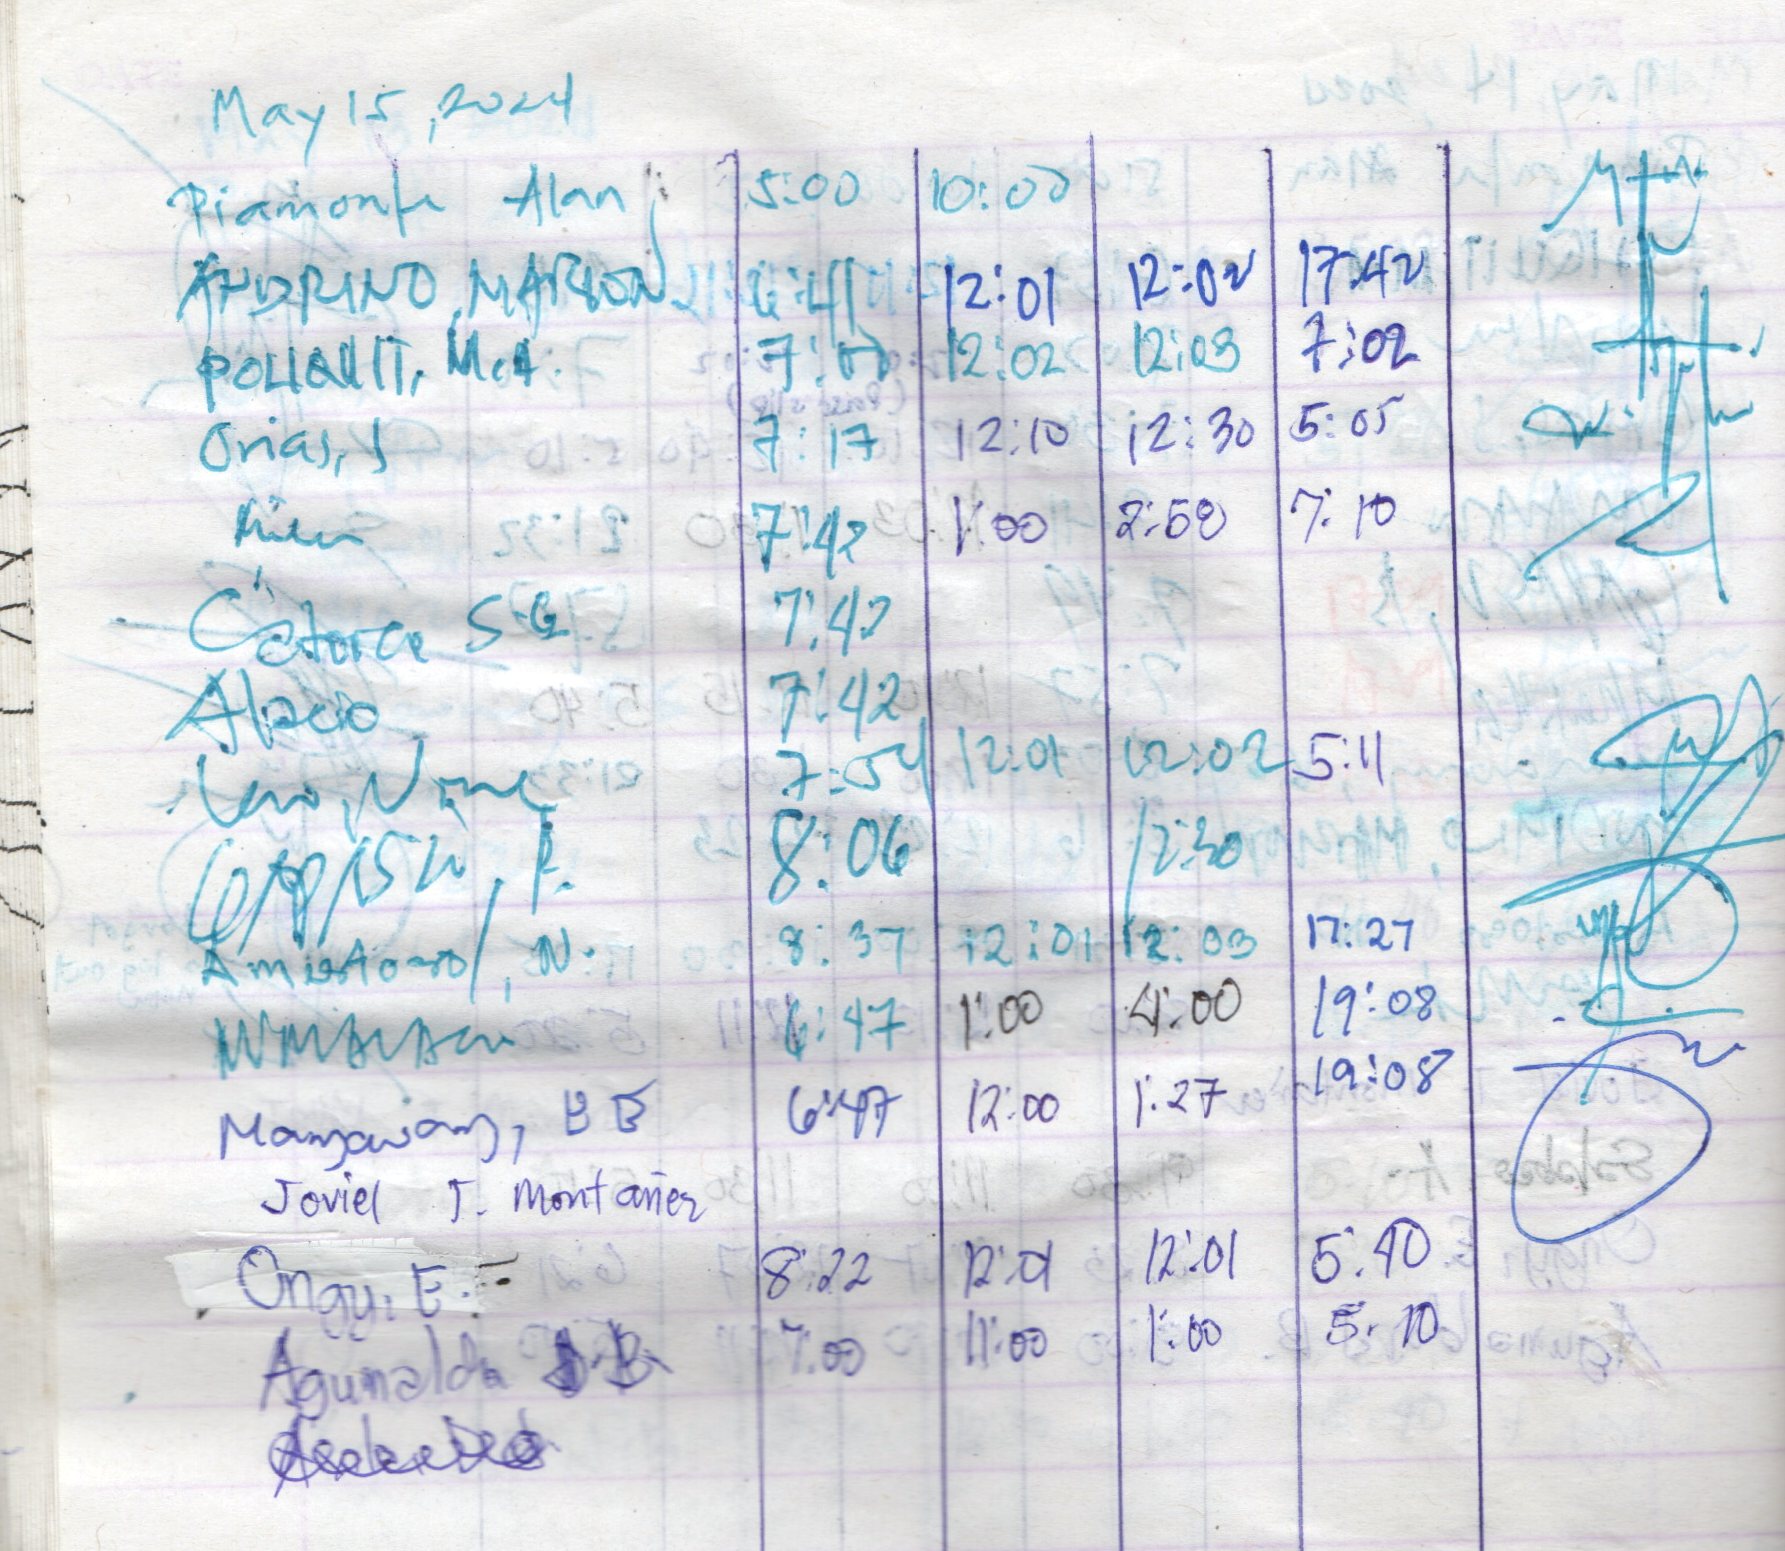 May 15, 2024
Piamonte Alan 5:00 10:00
ANDRINO, MARION 6:41 12:01 12:02 17:42
POLIQUIT, M.A. 7:00 12:02 12:03 7:02
Orias, J 7:17 12:10 12:30 5:05
7:42 1:00 2:50 7:10
Catorce S.G 7:42
Alpcio 7:42
Nime 7:54 12:01 12:02 5:11
8:06 12:30
Amistoso, N. 8:37 12:01 12:03 17:27
6:47 1:00 4:00 19:08
Mangawang, BB 6:47 12:00 1:27 19:08
Joviel J. Montañez
Ongy, E. 8:22 12:01 12:01 5:40
Agunalda 7:00 11:00 1:00 5:10